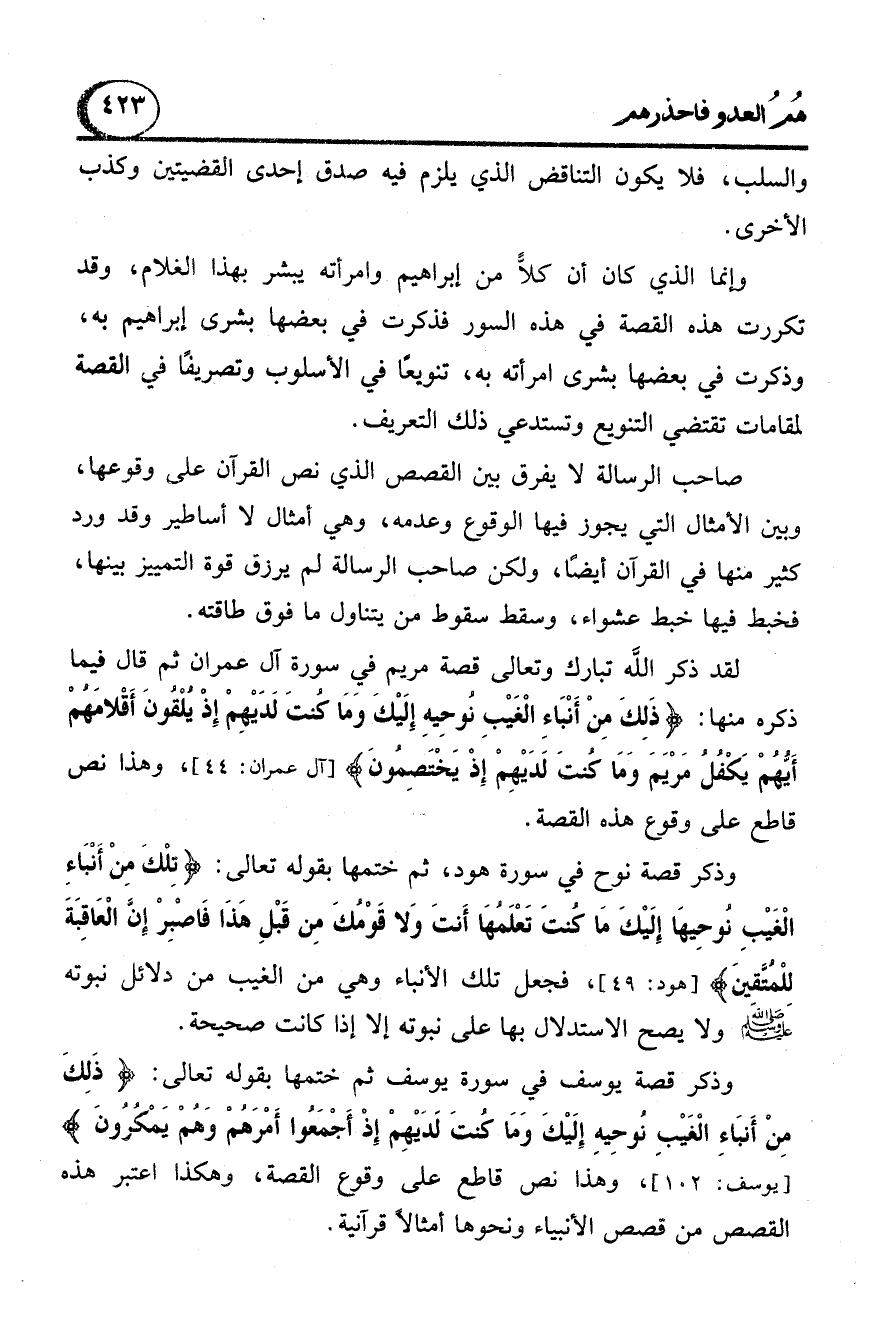 هُمُ العدو فاحذرهم ٤٢٣
والسلب، فلا يكون التناقض الذي يلزم فيه صدق إحدى القضيتين وكذب
الأخرى.
وإنما الذي كان أن كلاًّ من إبراهيم وامرأته يبشر بهذا الغلام، وقد
تكررت هذه القصة في هذه السور فذكرت في بعضها بشرى إبراهيم به،
وذكرت في بعضها بشرى امرأته به، تنويعًا في الأسلوب وتصريفًا في القصة
لمقامات تقتضي التنويع وتستدعي ذلك التعريف.
صاحب الرسالة لا يفرق بين القصص الذي نص القرآن على وقوعها،
وبين الأمثال التي يجوز فيها الوقوع وعدمه، وهي أمثال لا أساطير وقد ورد
كثير منها في القرآن أيضًا، ولكن صاحب الرسالة لم يرزق قوة التمييز بينها،
فخبط فيها خبط عشواء، وسقط سقوط من يتناول ما فوق طاقته.
لقد ذكر اللَّه تبارك وتعالى قصة مريم في سورة آل عمران ثم قال فيما
ذكره منها: ﴿ذَلِكَ مِنْ أَنْبَاءِ الْغَيْبِ نُوحِيهِ إِلَيْكَ وَمَا كُنتَ لَدَيْهِمْ إِذْ يُلْقُونَ أَقْلامَهُمْ
أَيُّهُمْ يَكْفُلُ مَرْيَمَ وَمَا كُنتَ لَدَيْهِمْ إِذْ يَخْتَصِمُونَ﴾ [آل عمران: ٤٤]، وهذا نص
قاطع على وقوع هذه القصة.
وذكر قصة نوح في سورة هود، ثم ختمها بقوله تعالى: ﴿تِلْكَ مِنْ أَنْبَاءِ
الْغَيْبِ نُوحِيهَا إِلَيْكَ مَا كُنتَ تَعْلَمُهَا أَنتَ وَلَا قَوْمُكَ مِن قَبْلِ هَذَا فَاصْبِرْ إِنَّ الْعَاقِبَةَ
لِلْمُتَّقِينَ﴾ [هود: ٤٩]، فجعل تلك الأنباء وهي من الغيب من دلائل نبوته
ﷺ ولا يصح الاستدلال بها على نبوته إلا إذا كانت صحيحة.
وذكر قصة يوسف في سورة يوسف ثم ختمها بقوله تعالى: ﴿ ذَلِكَ
مِنْ أَنبَاءِ الْغَيْبِ نُوحِيهِ إِلَيْكَ وَمَا كُنتَ لَدَيْهِمْ إِذْ أَجْمَعُوا أَمْرَهُمْ وَهُمْ يَمْكُرُونَ ﴾
[يوسف: ١٠٢]، وهذا نص قاطع على وقوع القصة، وهكذا اعتبر هذه
القصص من قصص الأنبياء ونحوها أمثالاً قرآنية.